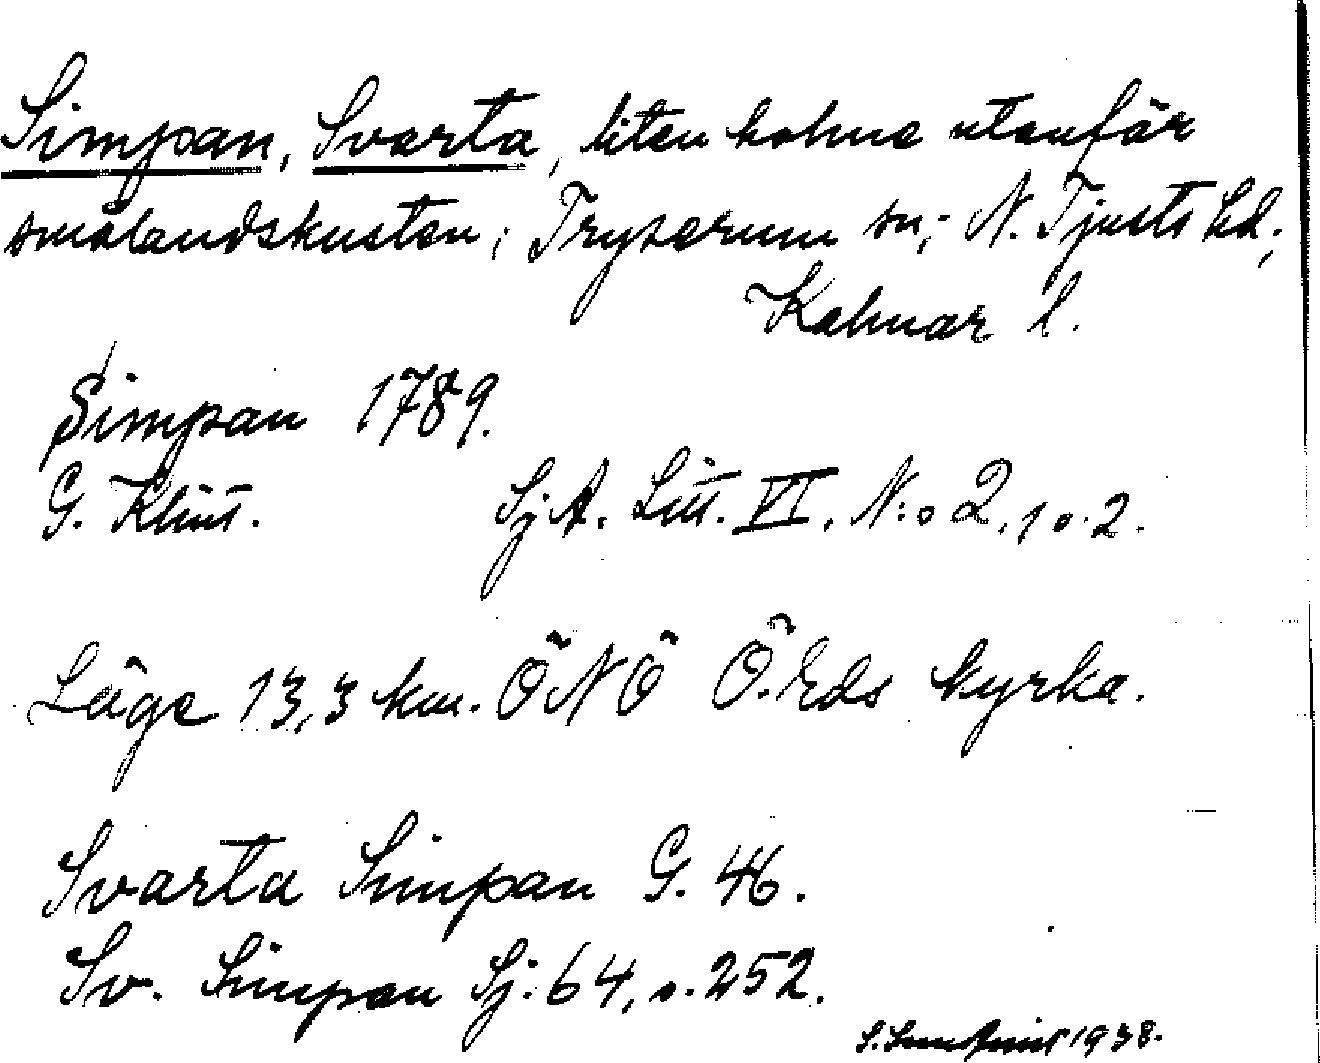 Simpan, Svarta, liten holme utanför
smålandskusten; Tryserum sn; N. Tjusts hd;
Kalmar l.
Simpan 1789.
G. Klint. SjA. Litt. VI. N:o 2, 1 o. 2.
Läge 13,3 km. ÖNÖ Ö. Eds kyrka.
Svarta Simpan G. 46.
Sv. Simpan Sj: 64, s. 252.
1938.